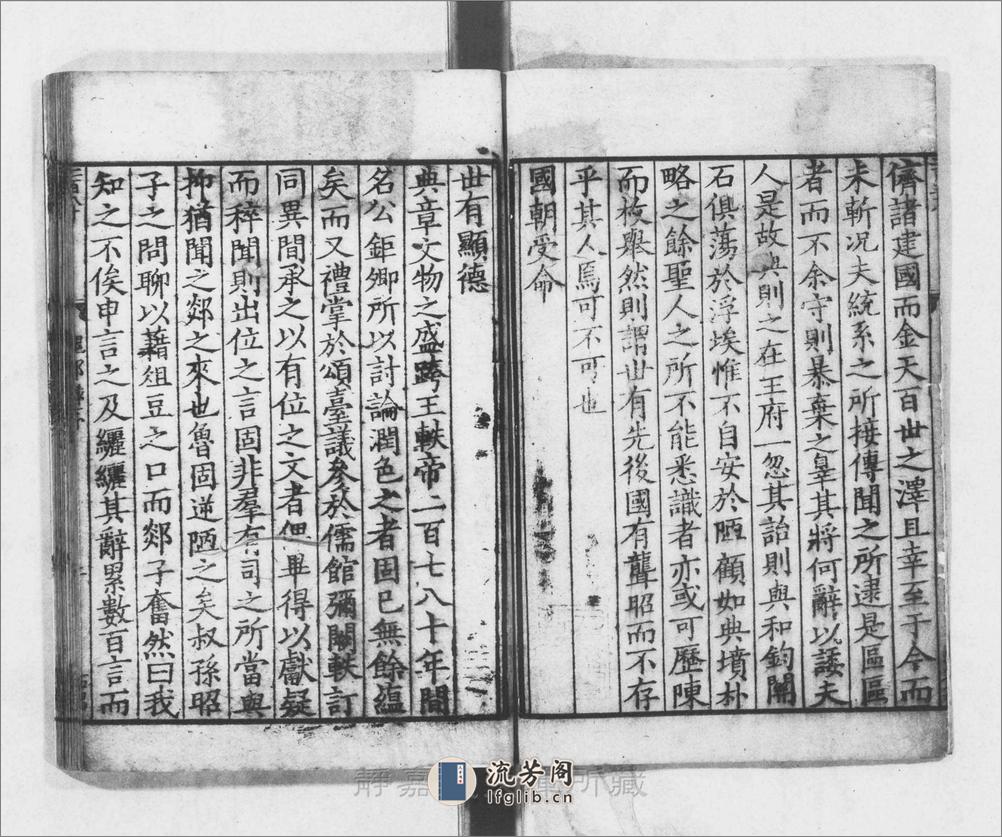 儕諸建國而金天百世之澤且幸至于今而
未斬况夫統系之所接傳聞之所逮是區區
者而不余守則暴棄之辠其將何辭以諉夫
人是故典則之在王府一忽其詒則與和鈞關
石俱蕩於浮埃惟不自安於陋顧如典墳朴
略之餘聖人之所不能悉識者亦或可歷陳
而枚舉然則謂世有先後國有聾昭而不存
乎其人焉可不可也
國朝受命
世有顯德
典章文物之盛跨王軼帝二百七八十年間
名公鉅卿所以討論潤色之者固已無餘蘊
矣而又禮掌於頌臺議參於儒館彌闕軼訂
同異間承之以有位之文者俚畢得以獻疑
而稡聞則出位之言固非羣有司之所當與
抑猶聞之郯之來也魯固逆陋之矣叔孫昭
子之問聊以藉俎豆之口而郯子奮然曰我
知之不俟申言之及纚纚其辭累數百言而
静嘉 所藏
流芳阁
lfglib.cn